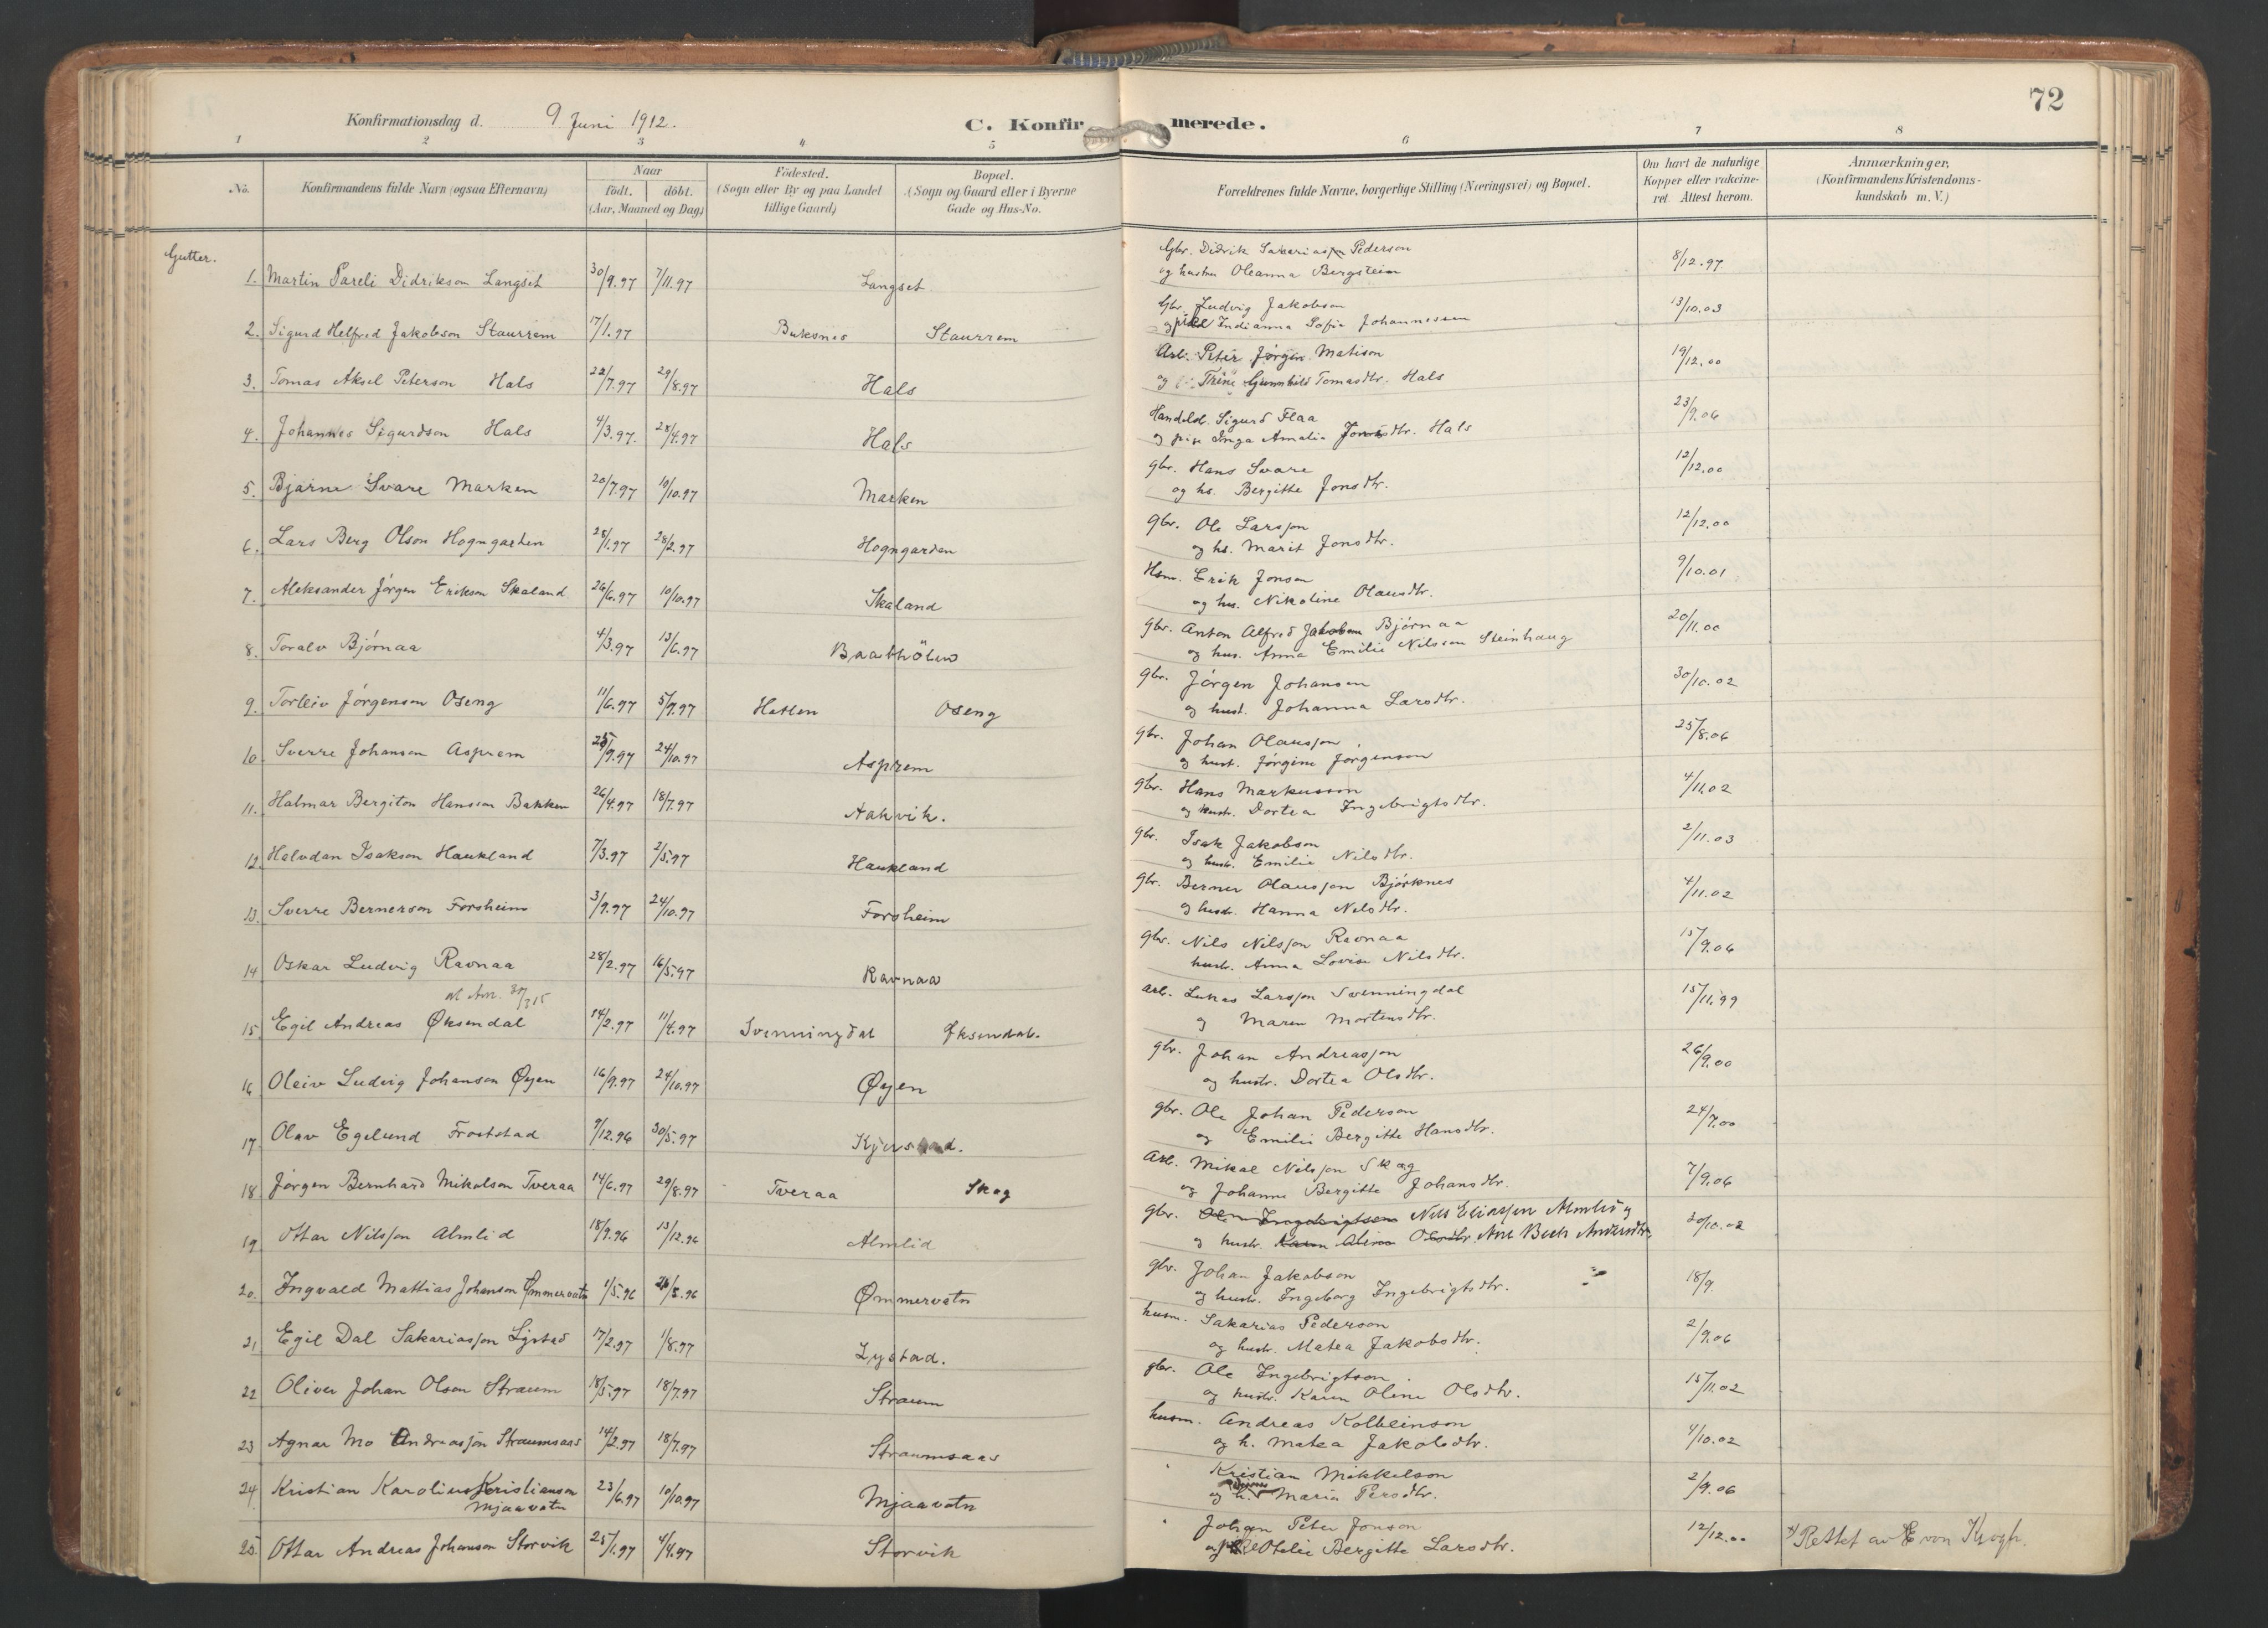 72
Konfirmationsdag d. 9 Juni 1912.
C. Konfirmerede.
1 2 3 4 5 6 7 8
No.
Konfirmandens fulde Navn (ogsaa Efternavn)
Naar
födt. döbt.
(Aar, Maaned og Dag)
Födested.
(Sogn eller By og paa Landet
tillige Gaard)
Bopæl.
(Sogn og Gaard eller i Byerne
Gade og Hus-No.
Forældrenes fulde Navne, borgerlige Stilling (Næringsvei) og Bopæl.
Om havt de naturlige
Kopper eller vakcine-
ret. Attest herom.
Anmærkninger,
(Konfirmandens Kristendoms-
kundskab m. V.)
Gutter.
1. Martin Pareli Didrikson Langset 30/9.97 7/11.97 Langset Gbr. Didrik Pederson 8/12.97
og hustru Oleanna Bergstein
2. Sigurd Helfred Jakobson Staurrem 17/1.97 Buksnes Staurrem Gbr. Ludvig Jakobson 13/10.03
og Indianna Sofie Johannessen
3. Tomas Aksel Peterson Hals 22/7.97 29/8.97 Hals Arb. Peter Jørgen Matison 19/12.00
og Trine Gunnhild Tomasdtr. Hals
4. Johannes Sigurdson Hals 4/3.97. 28/4.97 Hals Handelsb. Sigurd Flaa 23/9.06
og Inga Amalia Jonsdtr. Hals
5. Bjarne Svare Marken 20/7.97 10/10.97 Marken gbr. Hans Svare 12/12.00
og hs. Bergitte Jonsdtr.
6. Lars Berg Olson Hogngarden 28/1.97 28/2.97 Hogngarden gbr. Ole Larsson 12/12.00
og hs. Marit Jonsdtr.
7. Aleksander Jørgen Erikson Skaland 26/6.97 10/10.97 Skaland Hsm. Erik Jonson 9/10.01
og hus. Nikoline Olausdtr.
8. Toralv Bjørnaa 4/3.97 13/6.97 gbr. Anton Alfred Jakobson Bjørnaa 20/11.00
og hus. Anna Emilie Nilsson Steinhaug
9. Torleiv Jørgenson Oseng 11/6.97 5/9.97 Hatten Oseng gbr. Jørgen Johansen 30/10.02
og hust. Johanna Larsdtr.
10. Sverre Johanson Asprem 25/9.97 24/10.97 Asprem gbr. Johan Olausson 25/8.06
og hust. Jørgine Jørgenson
11. Halmar Bergiton Hansson Bakken 26/4.97 18/7.97 Aakvik. gbr. Hans Markusson 4/11.02
og hustr. Dortea Ingebrigtsdtr.
12. Halvdan Isakson Haukland 7/3.97 2/5.97 Haukland gbr. Isak Jakobson 2/11.03
og hustr. Emilie Nilsdtr.
13. Sverre Bernerson Forsheim 3/9.97 24/10.97 Forsheim gbr. Berner Olausson Bjørknes 4/11.02
og hustr. Hanna Nilsdtr.
14 Oskar Ludvig Ravnaa 28/2.97 16/5.97 Ravnaa gbr. Nils Nilsson Ravnaa 15/9.06
hustr. Anna Lovise Nilsdtr.
15. Egil Andreas Øksendal 14/2.97 11/4.97 Svenningdal Øksendal. arb. Lukas Larsson Svenningdal 15/11.99
og Maren Mortensdtr.
16 Oleiv Ludvig Johanson Øyen 16/9.97 24/10.97 Øyen gbr. Johan Andreasson 26/9.00
og hustr. Dortea Olsdtr.
17. Olav Egelund Froststad 9/12.96 30/5.97 gbr. Ole Johan Pederson 24/7.00
og Emilie Bergitte Hansdtr.
18 Jørgen Bernhard Mikalson Tveraa 14/6.97 29/8.97 Tveraa Skog Arb. Mikal Nilsson Skog 7/9.06
og Johanna Bergitte Johansdtr.
19. Ottar Nilsson Almlid 18/9.96 13/12.96 Almlid gbr. Ole Ingebrigtsen Nils Eliassen Almlid 30/10.02
og hustr. Karen Olina Olsdtr. Ane Beck Andersdtr.
20. Ingvald Mattias Johanson Ømmervatn 1/5.96 Ømmervatn gbr. Johan Jakobson 18/9.
og hustr. Ingeborg Ingebrigtsdtr.
21 Egil Dal Sakariasson Lystad 17/2.97 1/8.97 Lystad. husm. Sakarias Pederson 2/9.06
og hustr. Matea Jakobsdtr.
22 Oliver Johan Olson Straum 18/5.97 18/7.97 Straum gbr. Ole Ingebrigtson 15/11.02
og hustr. Karen Olena Olsdtr.
23 Agnar Mo Andreasson Straumsaas 14/2.97 18/7.97 Straumsaas husm. Andreas Kolbeinson 4/10.02
og h. Matea Jakobsdtr.
24 Kristian Karolius Kristianson 23/6.97 10/10.97 Mjaavatn Kristian Mikkelson 2/9.06
Mjaavatn og h. Maria Persdtr.
25. Ottar Andreas Johanson Storvik 25/1.97 4/4.97 Storvik Johan Peter Jonson 12/12.00 Rettet av E von Krogh.
og Otelie Bergitte Larsdtr.